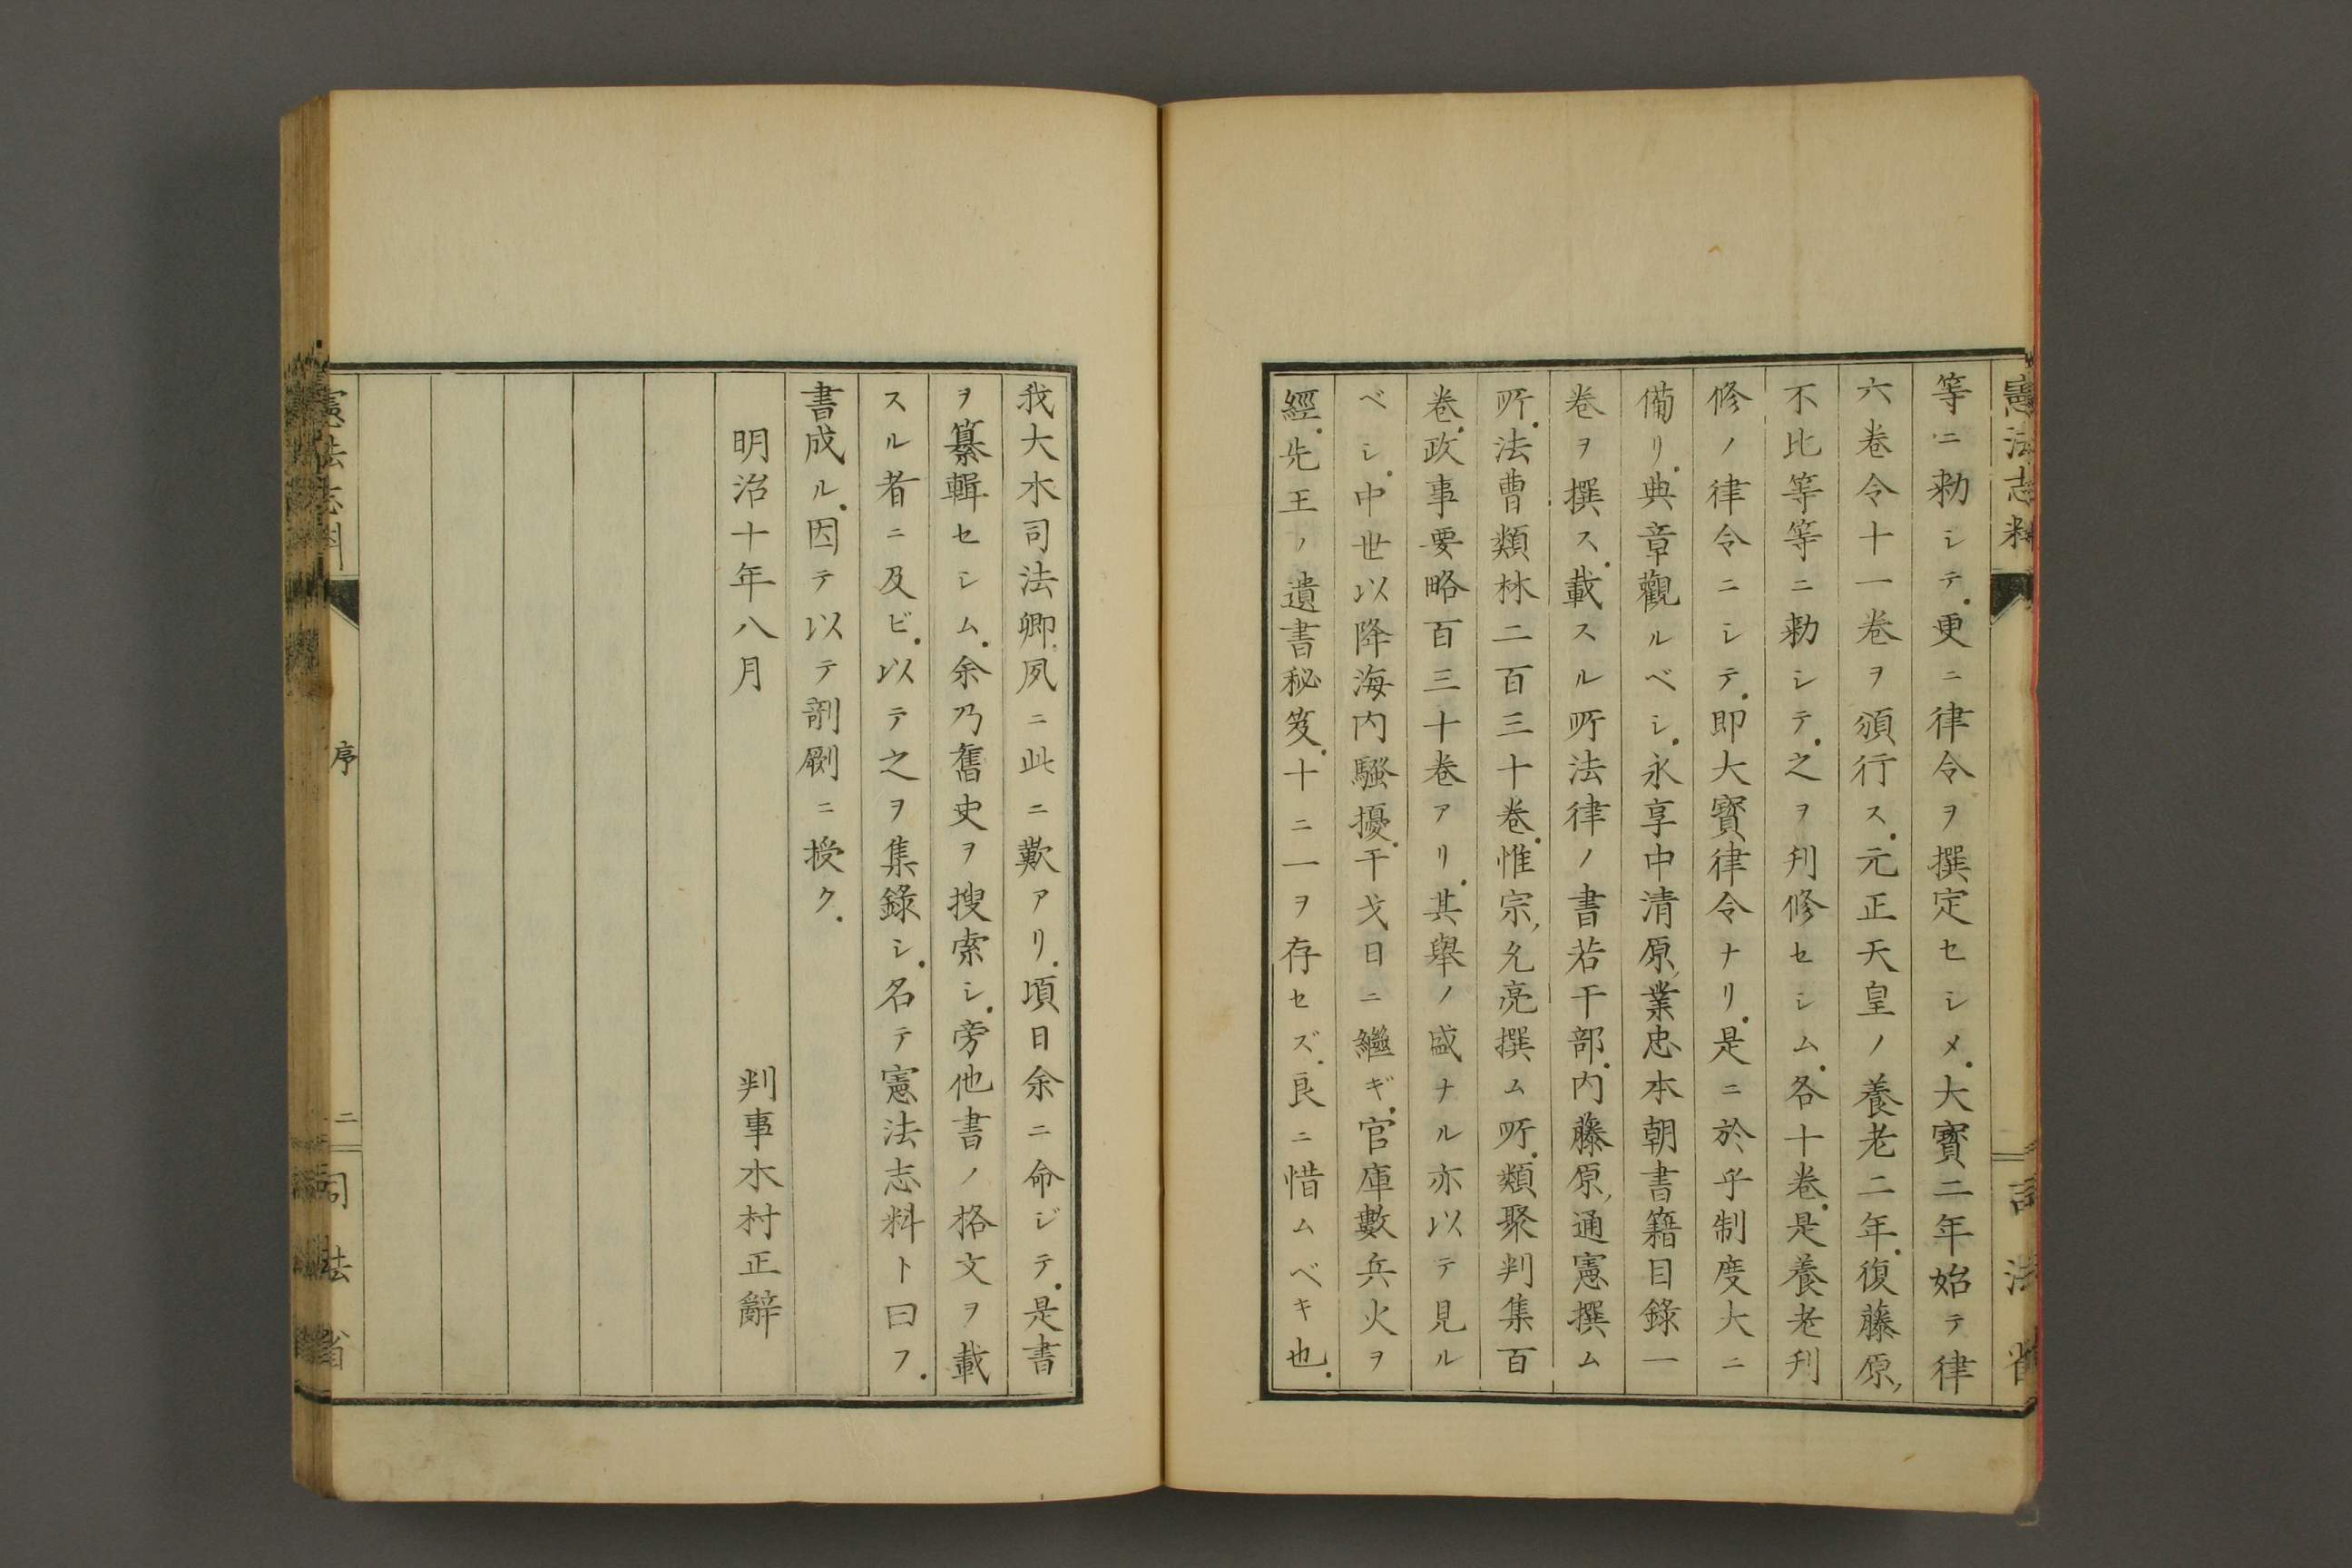 憲法志料
司法省
等ニ勅シテ.更ニ律令ヲ撰定セシメ.大寳二年始テ律
六卷令十一卷ヲ頒行ス.元正天皇ノ養老二年.復藤原,
不比等等ニ勅シテ.之ヲ刋修セシム.各十卷.是養老刋
修ノ律令ニシテ.即大寳律令ナリ.是ニ於乎制度大ニ
備リ.典章觀ルベシ.永享中清原,業忠本朝書籍目錄一
卷ヲ撰ス.載スル所法律ノ書若干部.内藤原,通憲撰ム
所.法曹類林二百三十卷.惟宗,允亮撰ム所.類聚判集百
卷.政事要略百三十卷アリ.其舉ノ盛ナル亦以テ見ル
ベシ.中世以降海内騷擾.干戈日ニ繼ギ.官庫數兵火ヲ
經.先王ノ遺書秘笈.十ニ一ヲ存セズ.良ニ惜ムベキ也.
我大木司法卿.夙ニ此ニ歎アリ.頃日余ニ命ジテ.是書
ヲ纂輯セシム.余乃舊史ヲ搜索シ.旁他書ノ格文ヲ載
スル者ニ及ビ.以テ之ヲ集錄シ.名テ憲法志料ト曰フ.
書成ル.因テ以テ剞劂ニ授ク.
明治十年八月
判事木村正辭
憲法志料
序
二
司法省